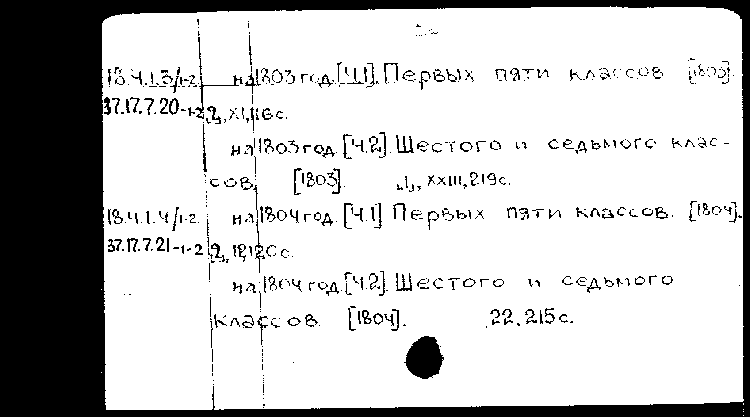 18.4.1.3/1-2 на 1803 год. [Ч.1]. Первых пяти классов [1803].
37.17.7.20-1-2 XI, 116 с.
на 1803 год. [Ч.2]. Шестого и седьмого клас-
сов. [1803]. XXIII, 219 с.
18.4.1.4/1-2 на 1804 год. [Ч.1]. Первых пяти классов. [1804].
37.17.7.21-1-2 120 с.
на 1804 год. [Ч.2]. Шестого и седьмого
классов. [1804]. 22, 215 с.